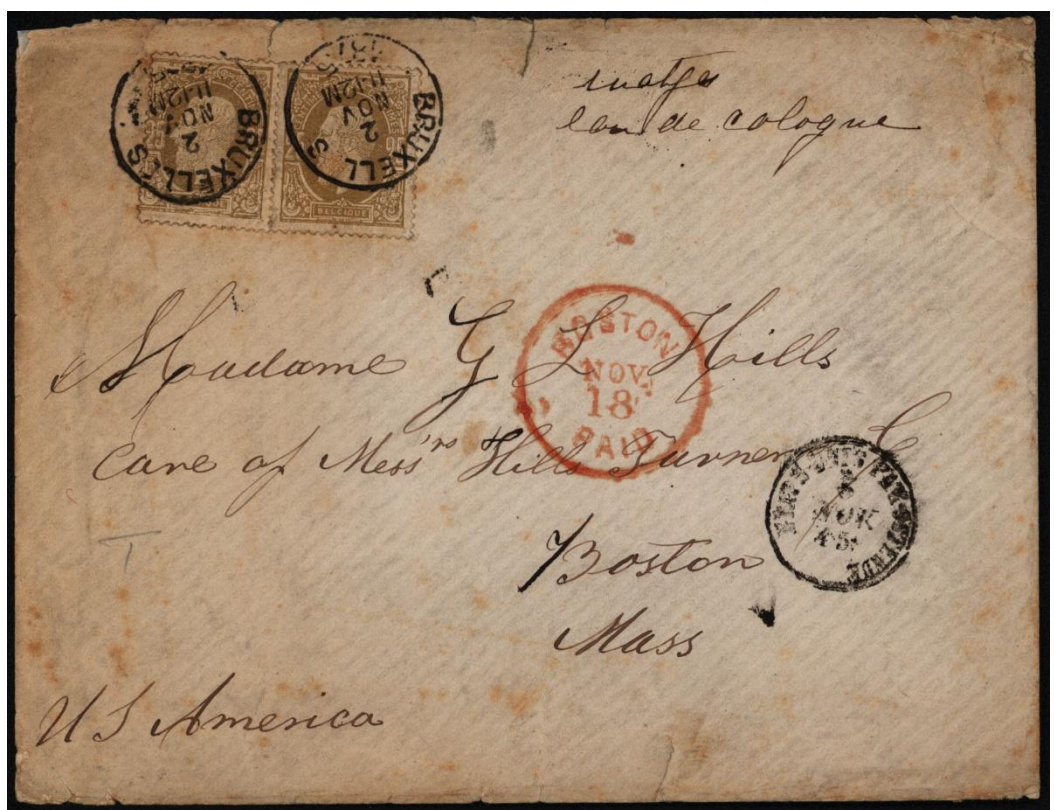 BRUXELLES
2
NOV
11-12M
1875
BRUXELL S
2
NOV
11-12M
1875
BELGIQUE
eau de cologne
Madame G L Hills
BOSTON
NOV
18
PAID
Care of Mess'rs Hills Turner C
ETATS-UNIS PAR OSTENDE
2
NOV
75
Boston
Mass
T
U S America